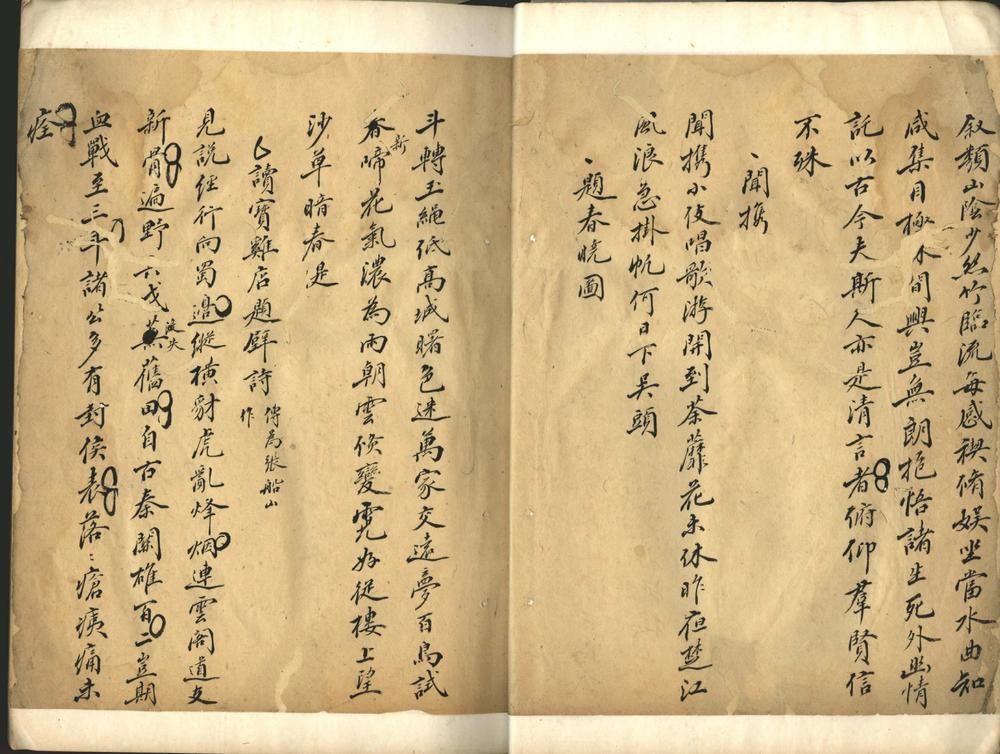 叙類山陰少丝竹臨流每感禊脩娛坐當水曲知
咸集目極林間興豈無朗抱悟諸生死外幽情
託以古今夫斯人亦是清言者俯仰羣賢信
不殊
聞携
聞携小伎唱歌游開到荼蘼花未休昨夜楚江
風浪急掛帆何日下吴頭
題春曉圖
斗轉玉繩低高城曙色迷萬家交遠夢百鳥試
新
春啼花氣濃為雨朝雲倏變霓好從樓上望
沙草暗春堤
讀寶雞店題壁詩 傳為張船山作
見説經行向蜀邊縱橫豺虎亂烽烟連雲閣道支
新骨遍野六戈蕪舊田自古秦關雄百二豈期
血戰至三年諸公多有封侯表落ミ瘡痍痛未
痊